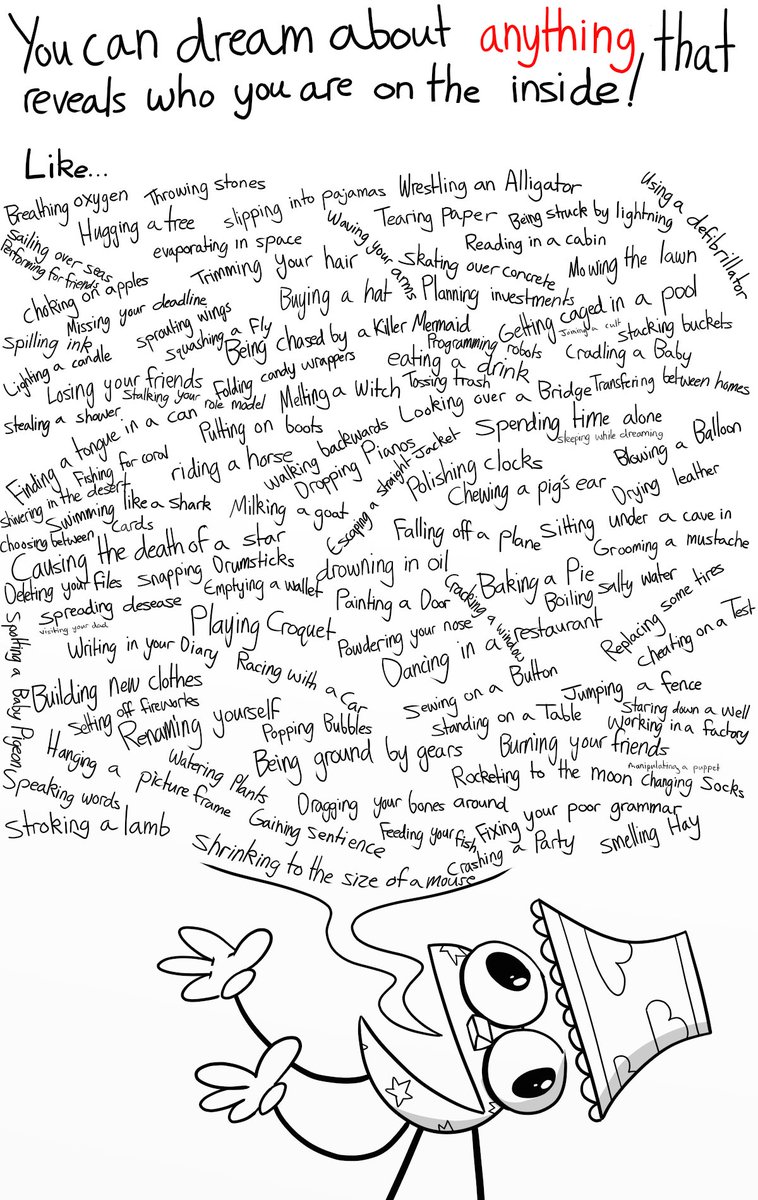 You can dream about anything, that
reveals who you are on the inside!
Like...
Breathing oxygen
Throwing stones
slipping into pajamas
Wrestling an Alligator
Using a defibrillator
Sailing over seas
Performing for friends
Hugging a tree
evaporating in space
Waving your arms
Tearing Paper
Being stuck by lightning
Reading in a cabin
Choking on apples
Trimming your hair
Skating over concrete
Mowing the lawn
Missing your deadline
Buying a hat
Planning investments
Getting caged in a pool
Joining a cult
stacking buckets
Spilling ink
sprouting wings
Squashing a Fly
Being chased by a Killer Mermaid
Programming robots
Cradling a Baby
Lighting a candle
Losing your friends
Stalking your role model
Folding candy wrappers
eating a drink
Melting a Witch
Tossing trash
Looking over a Bridge
Transfering between homes
Stealing a shower
Finding a tongue in a can
Putting on boots
Walking backwards
Spending time alone
Sleeping while dreaming
Blowing a Balloon
Fishing for coral
riding a horse
Dropping Pianos
Escaping a straight-Jacket
Polishing clocks
Chewing a pig's ear
Drying leather
shivering in the desert
Swimming like a shark
Milking a goat
Choosing between cards
Causing the death of a star
Falling off a plane
Sitting under a cave in
Grooming a mustache
Deleting your files
Snapping Drumsticks
Emptying a wallet
drowning in oil
Cracking a window
Baking a Pie
Boiling salty water
Spreading desease
visiting your dad
Painting a Door
Replacing some tires
Cheating on a Test
Spotting a Baby Pigeon
Writing in your Diary
Playing Croquet
Powdering your nose
Dancing in a restaurant
Racing with a Car
Building new clothes
Setting off fireworks
Renaming yourself
Popping Bubbles
Sewing on a Button
Standing on a Table
Jumping a fence
Staring down a well
Working in a factory
Hanging a picture frame
Watering Plants
Being ground by gears
Burning your friends
manipulating a puppet
Rocketing to the moon
Changing Socks
Speaking words
Dragging your bones around
Stroking a lamb
Gaining sentience
Feeding your fish
Fixing your poor grammar
Crashing a Party
Smelling Hay
Shrinking to the size of a mouse